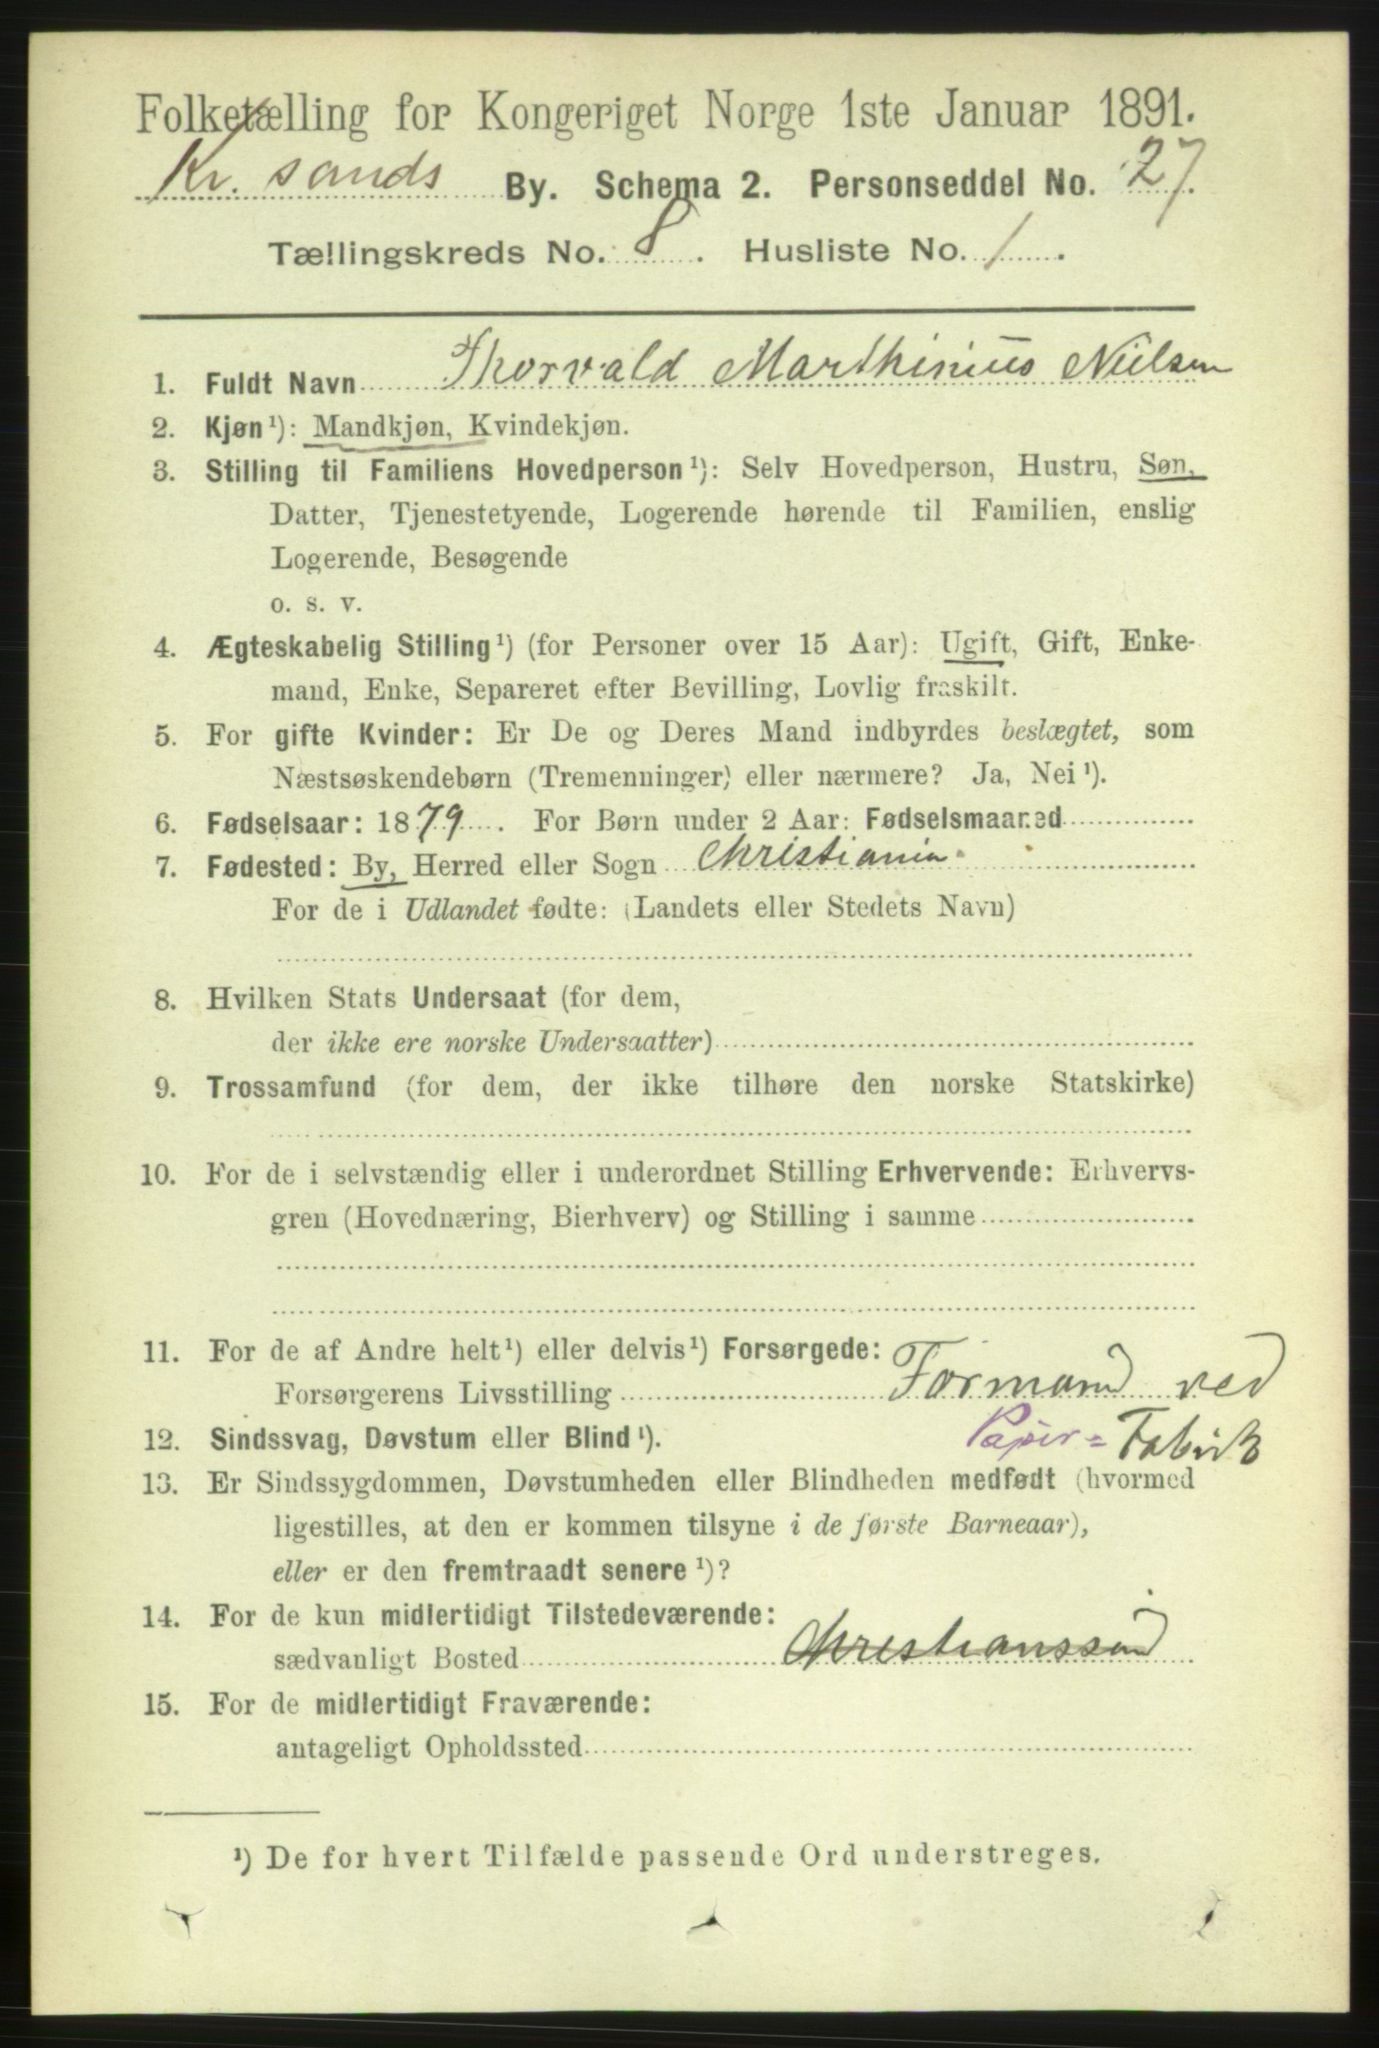 Folketælling for Kongeriget Norge 1ste Januar 1891.
Kr. sands By. Schema 2. Personseddel No. 27.
Tællingskreds No. 8. Husliste No. 1.
1. Fuldt Navn Thorvald Marthinius Nielsen
2. Kjøn¹): Mandkjøn, Kvindekjøn.
3. Stilling til Familiens Hovedperson¹): Selv Hovedperson, Hustru, Søn,
Datter, Tjenestetyende, Logerende hørende til Familien, enslig
Logerende, Besøgende
o. s. v.
4. Ægteskabelig Stilling¹) (for Personer over 15 Aar): Ugift, Gift, Enke-
mand, Enke, Separeret efter Bevilling, Lovlig fraskilt.
5. For gifte Kvinder: Er De og Deres Mand indbyrdes beslægtet, som
Næstsøskendebørn (Tremenninger) eller nærmere? Ja, Nei¹).
6. Fødselsaar: 1879. For Børn under 2 Aar: Fødselsmaaned
7. Fødested: By, Herred eller Sogn Christiania
For de i Udlandet fødte: (Landets eller Stedets Navn)
8. Hvilken Stats Undersaat (for dem,
der ikke ere norske Undersaatter)
9. Trossamfund (for dem, der ikke tilhøre den norske Statskirke)
10. For de i selvstændig eller i underordnet Stilling Erhvervende: Erhvervs-
gren (Hovednæring, Bierhverv) og Stilling i samme
11. For de af Andre helt¹) eller delvis¹) Forsørgede:
Forsørgerens Livsstilling Formand ved
12. Sindssvag, Døvstum eller Blind¹). Papir = Fabrik
13. Er Sindssygdommen, Døvstumheden eller Blindheden medfødt (hvormed
ligestilles, at den er kommen tilsyne i de første Barneaar),
eller er den fremtraadt senere¹)?
14. For de kun midlertidigt Tilstedeværende:
sædvanligt Bosted Christianssand
15. For de midlertidigt Fraværende:
antageligt Opholdssted
¹) De for hvert Tilfælde passende Ord understreges.